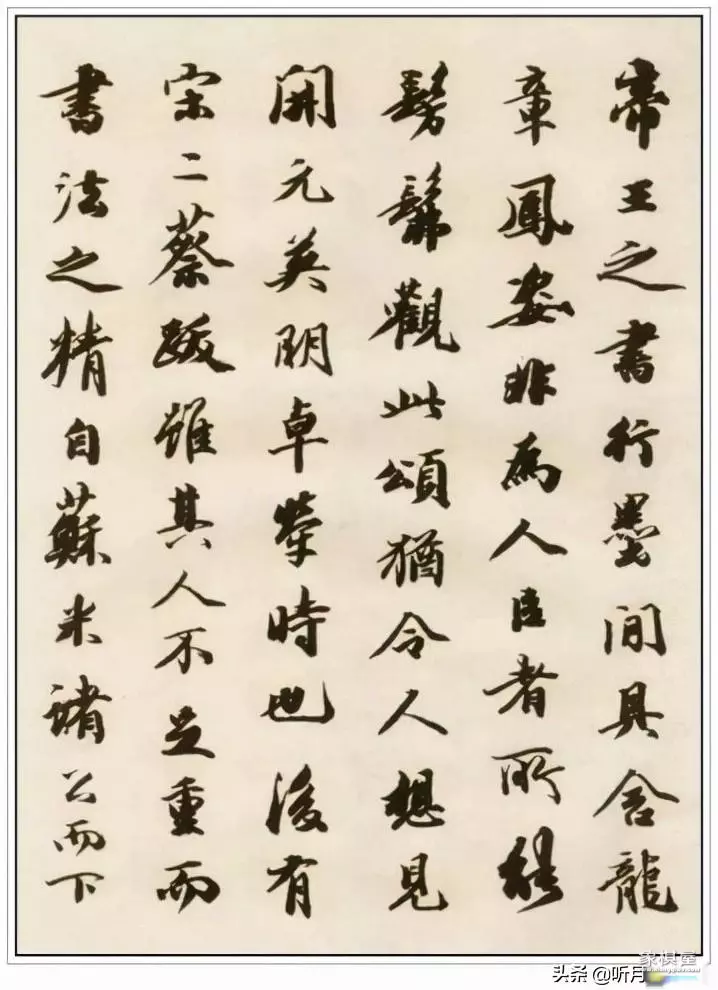 帝王之書行墨間具含龍
章鳳姿非爲人臣者所能
髣髴觀此頌猶令人想見
開元英明卓犖時也後有
宋二蔡跋雖其人不足重而
書法之精自蘇米諸公而下
象棋屋
头条@听月